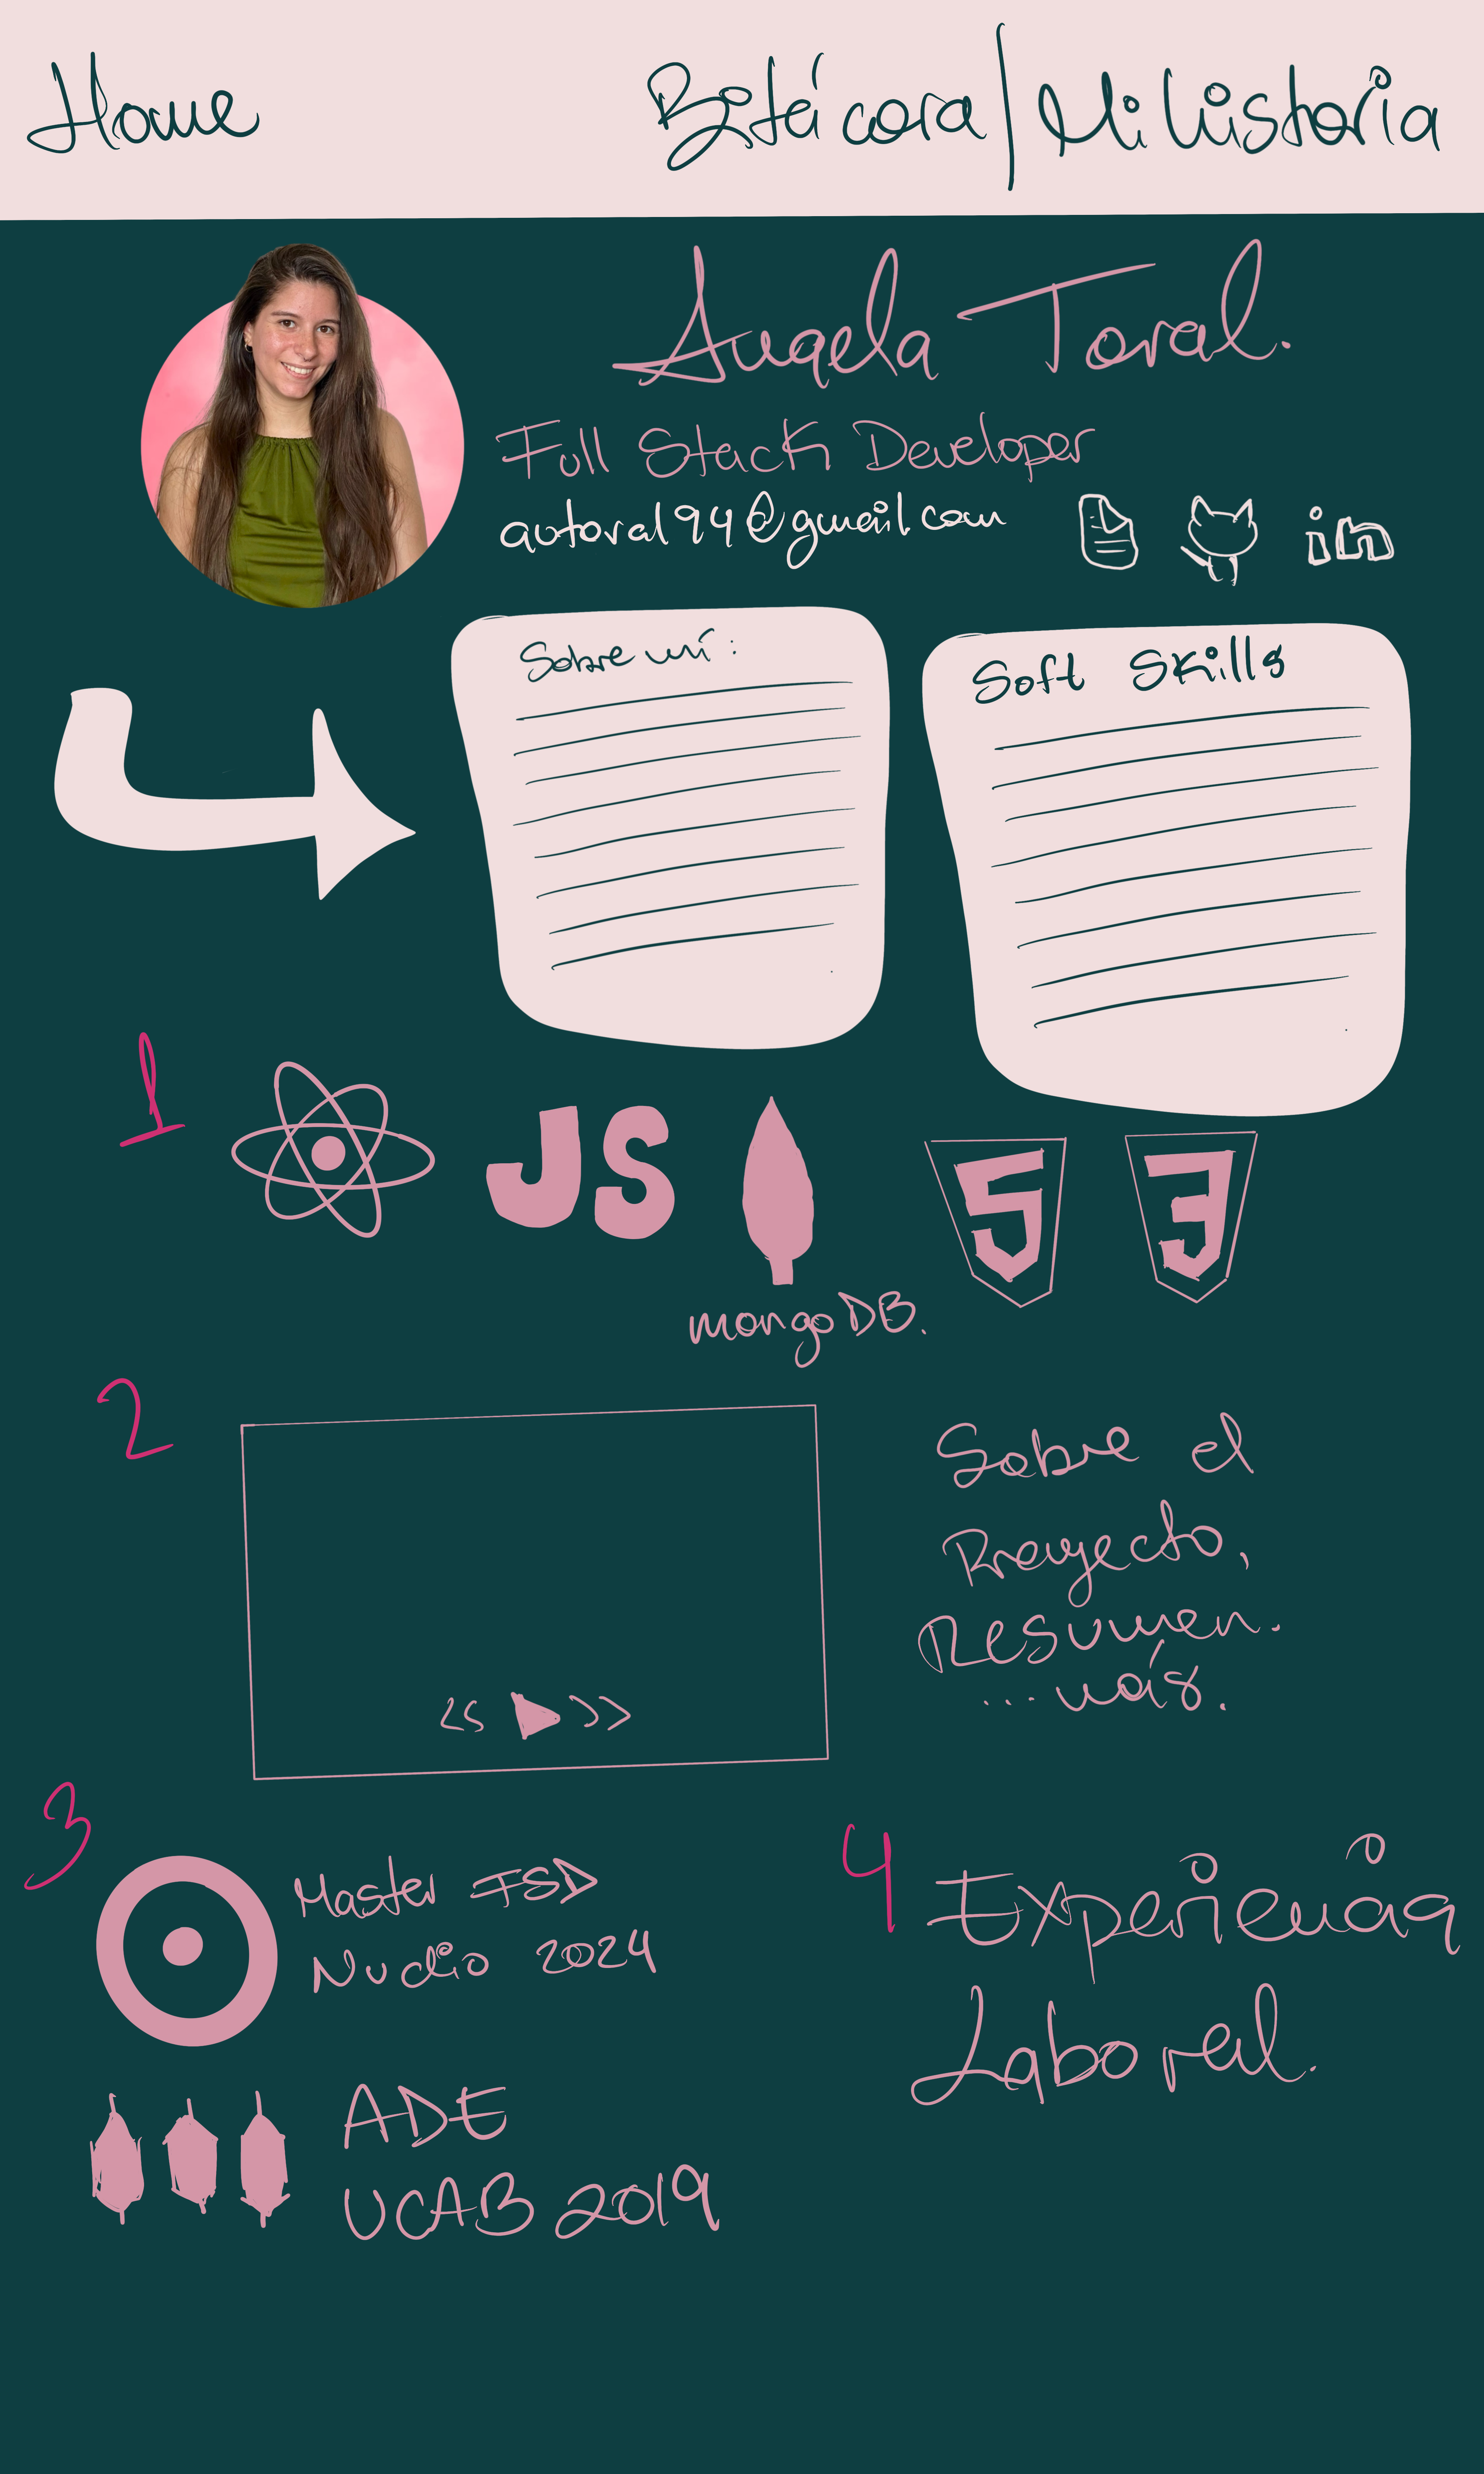 Home
Bitácora/Mi historia
Angela Toral.
Full Stack Developer
autoral94@gmail.com
in
Sobre mí:
Soft Skills
1
JS
5
3
mongoDB.
2
Sobre el
Proyecto,
Resumen.
...más.
3
Master FSD
Nudio 2024
ADE
UCAB 2019
4
Experiencia
Laboral.